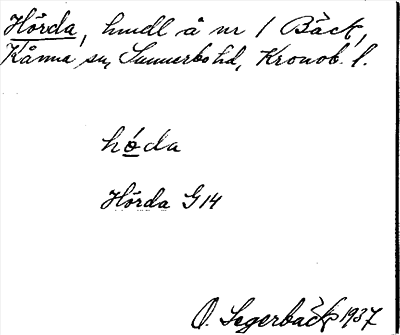 Hörda, hmdl å nr 1 Bäck,
Kånna sn, Sunnerbo hd, Kronob. l.
hóda
Hörda G14
O. Segerbäck 1937